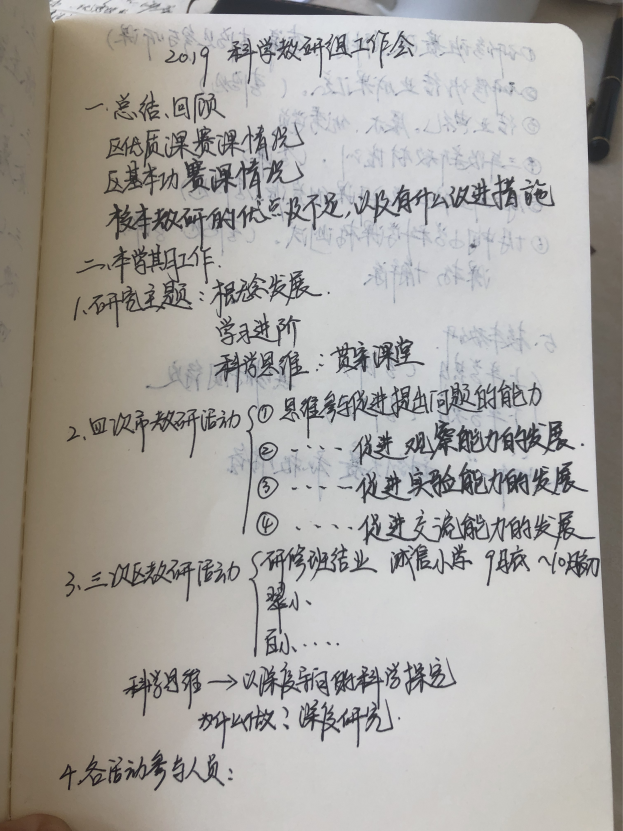 2019 科学教研组工作会
一.总结、回顾
区优质课赛课情况
区基本功赛课情况
校本教研的优点及不足,以及有什么改进措施
二.本学期工作.
1.研究主题:概念发展.
学习进阶
科学思维:贯穿课堂
2.四次市教研活动 ① 思维参与促进提出问题的能力
② ····促进观察能力的发展.
③ ····促进实验能力的发展
④ ····促进交流能力的发展
3.三次区教研活动 研修班结业 诚信小学 9月底~10月初
翠小、
百小·····
科学思维→以深度 的科学探究
为什么做?深度研究.
4.各活动参与人员: